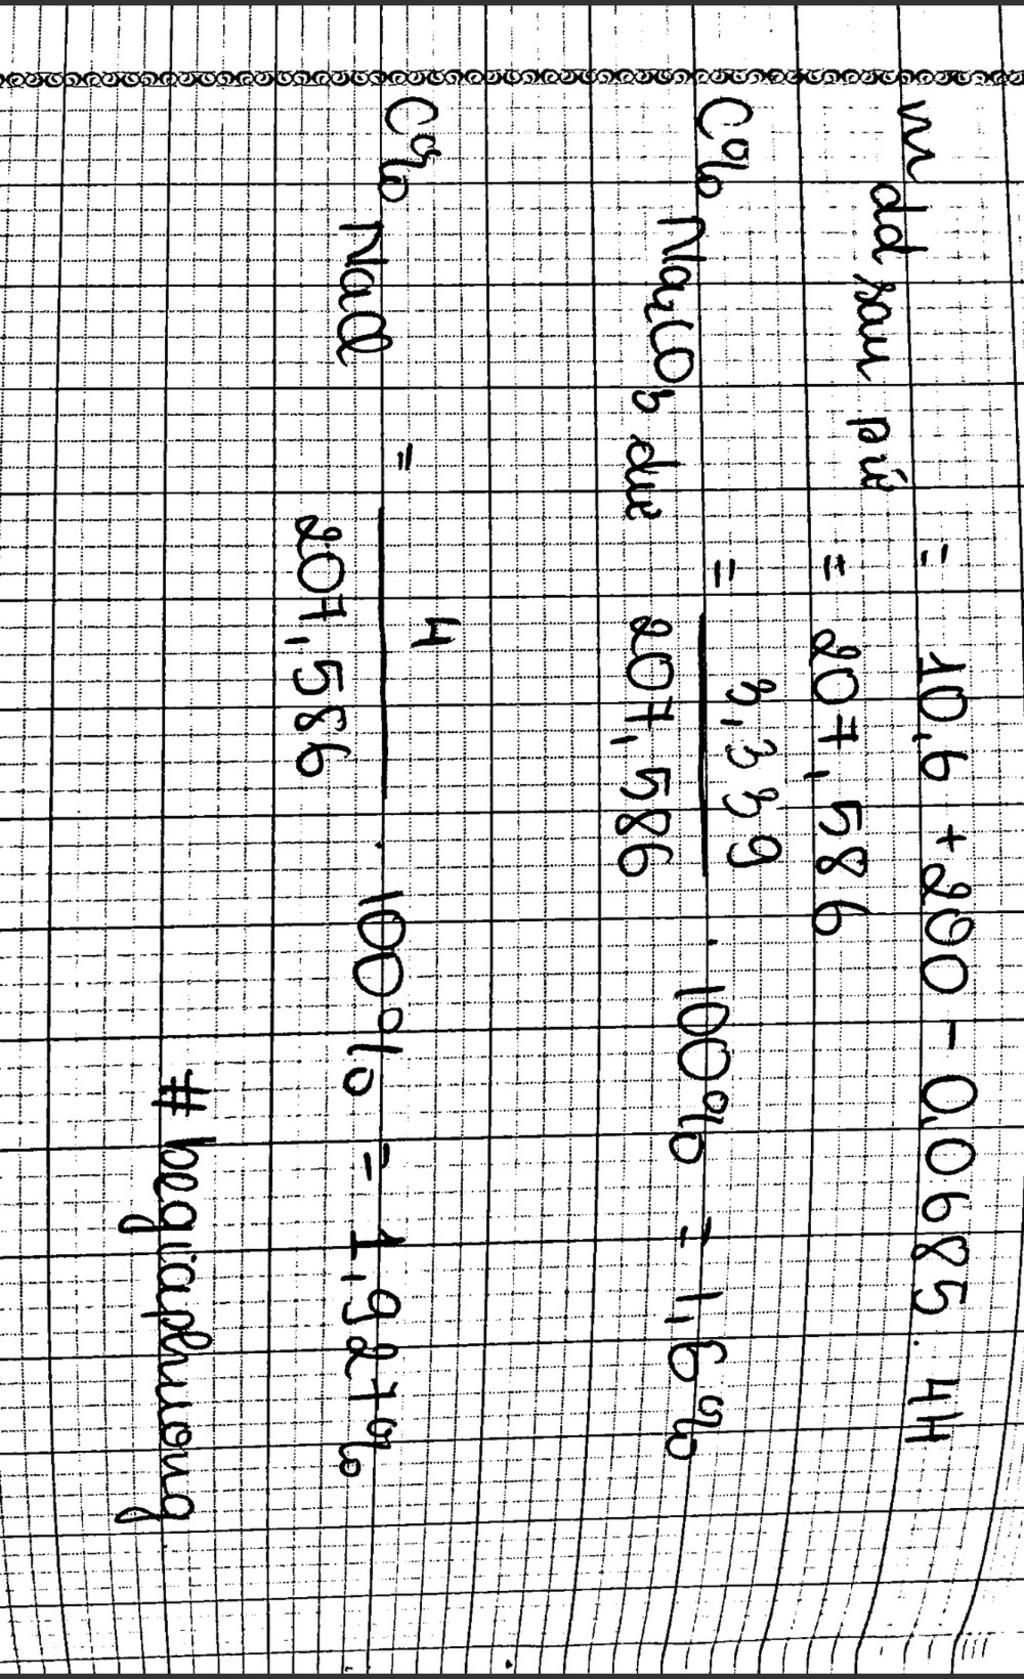 m dd sau pứ = 10,6 + 200 - 0,0685 . 44
= 207,586
C% Na2CO3 dư = 3,339 / 207,586 . 100% = 1,6%
C% NaCl = 4 / 207,586 . 100% = 1,927%
# begiaphuong